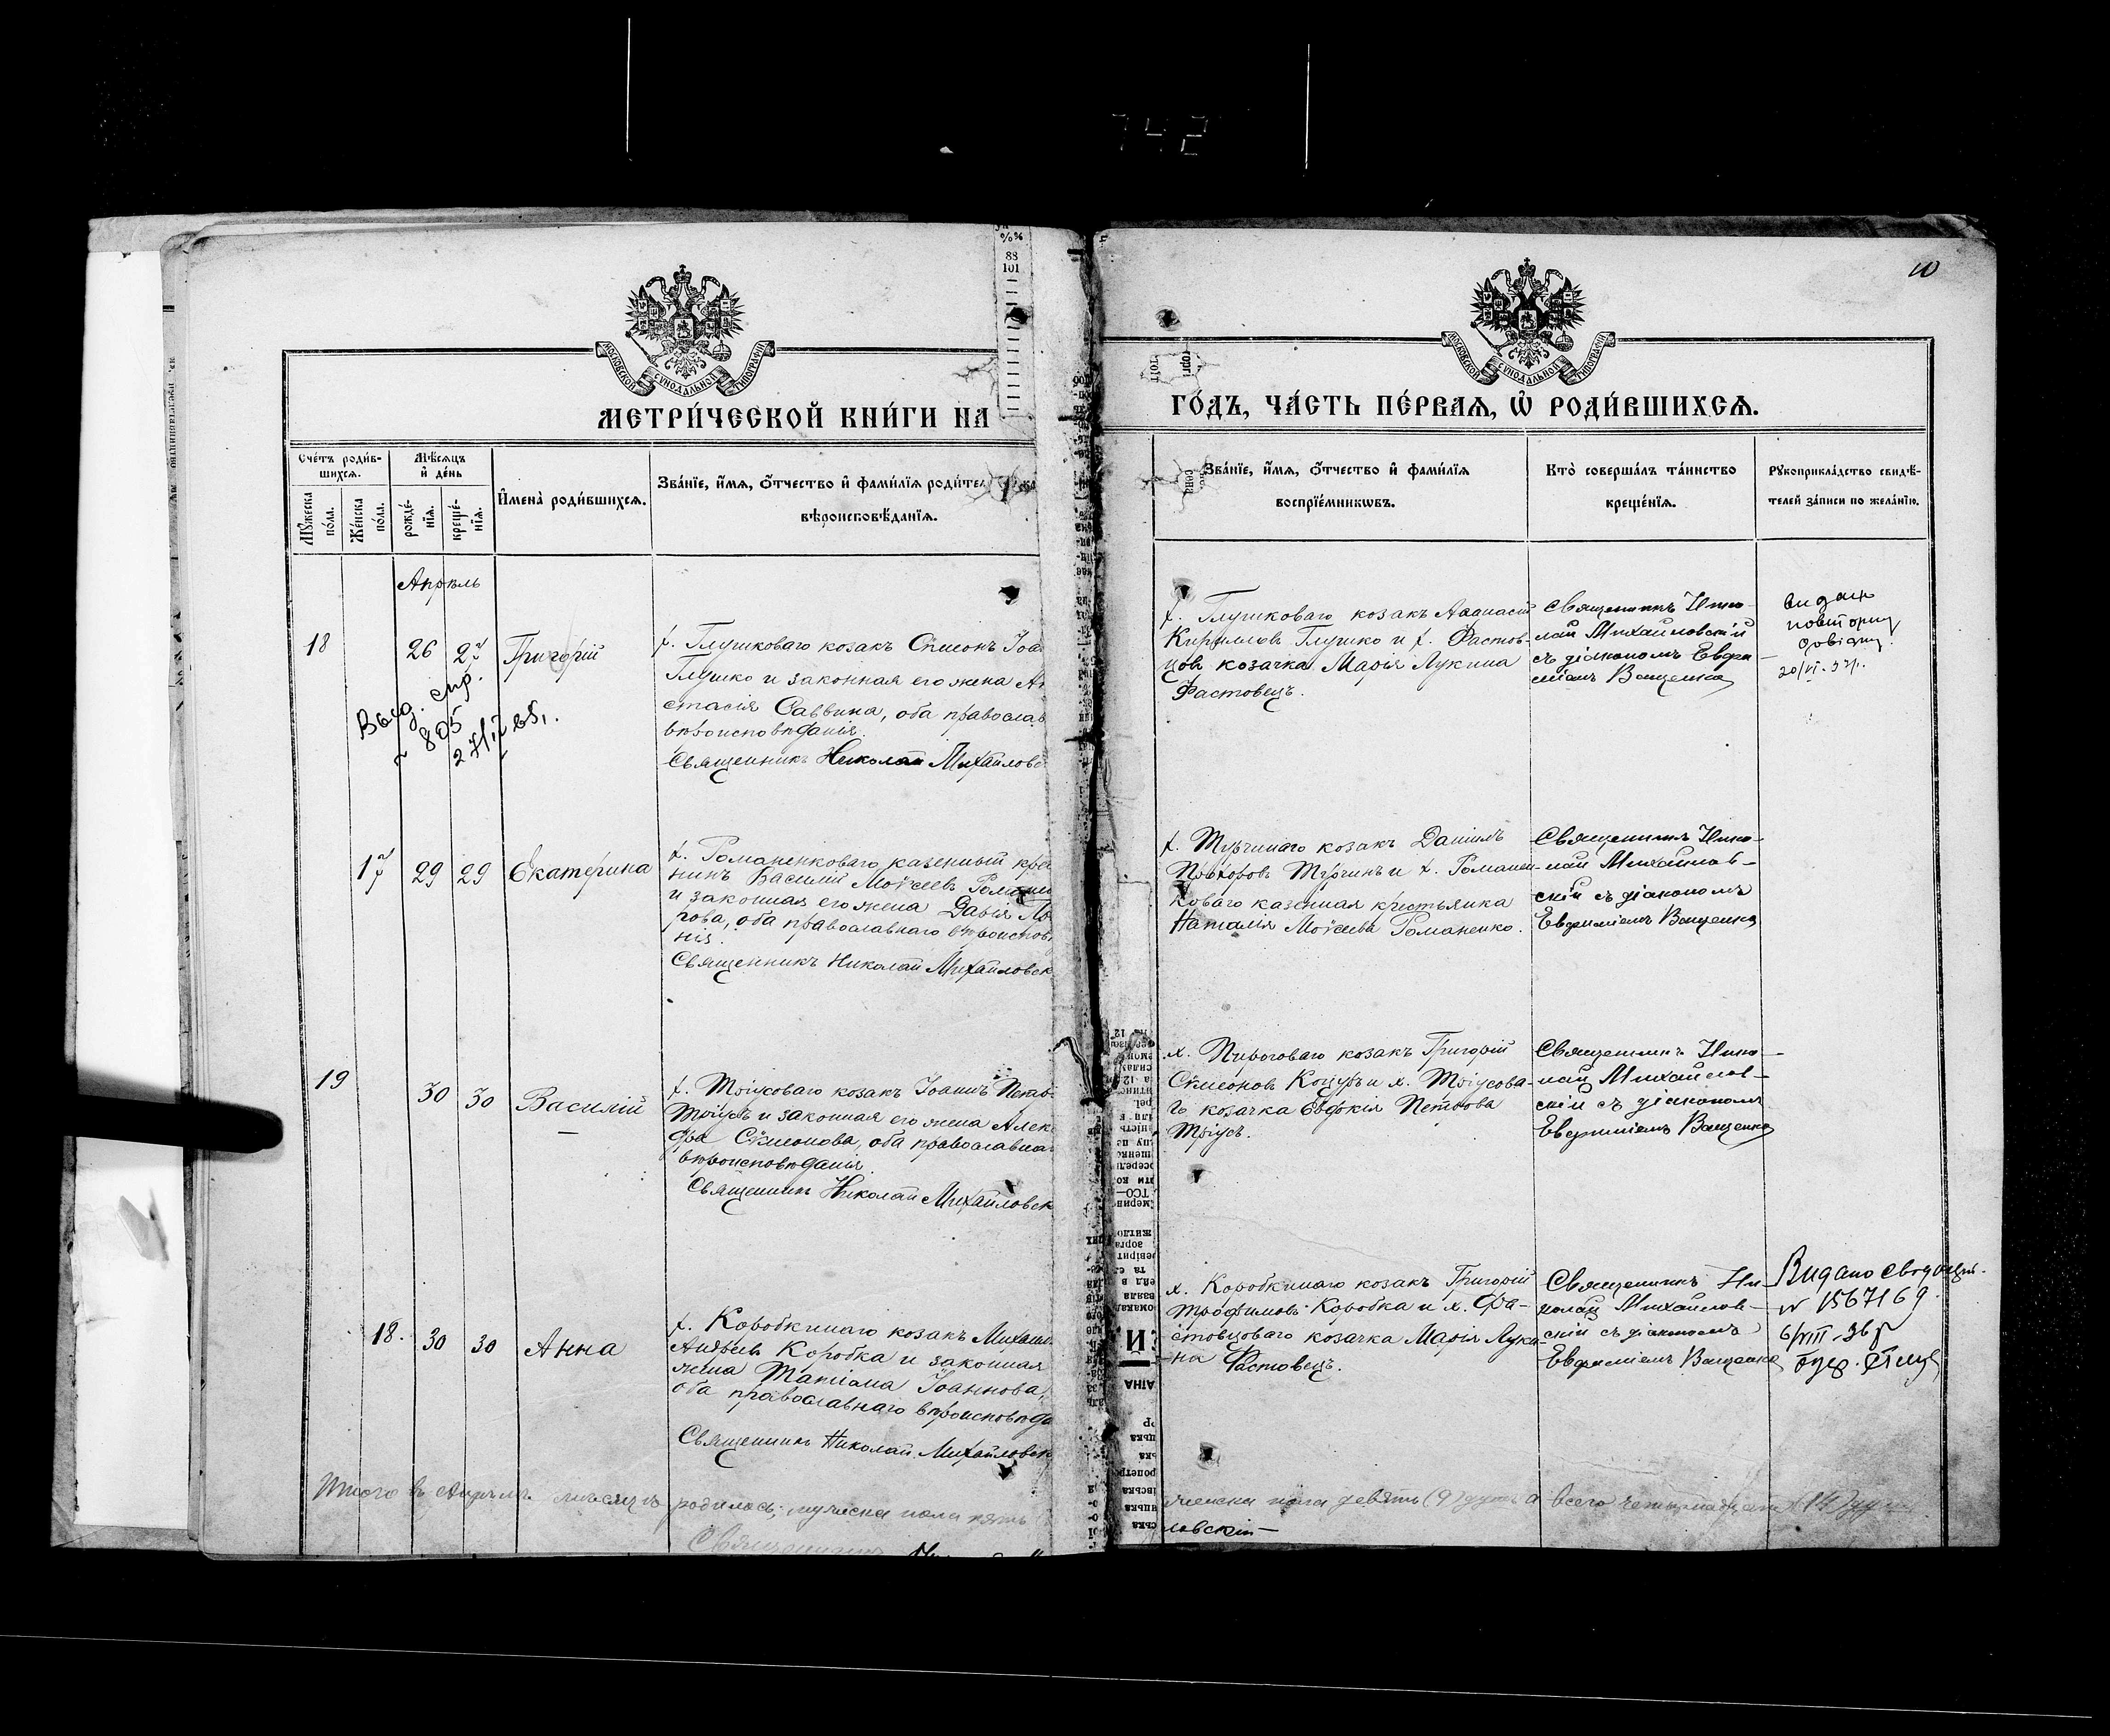 742
10
МОСКОВСКОЙ СѴНОДАЛЬНОЙ ТИПОГРАФІИ
МОСКОВСКОЙ СѴНОДАЛЬНОЙ ТИПОГРАФІИ
88
101
МЕТРИ́ЧЕСКОЙ КНИ́ГИ НА
ГО́ДЪ, ЧА́СТЬ ПЕ́РВАЯ, Ѽ РОДИ́ВШИХСѦ.
Сче́тъ роди́в-
шихсѧ.
Мꙋ́жеска
по́ла.
Же́нска
по́ла.
Мѣ́сѧцъ
и҆ де́нь
рожде́-
нїѧ.
креще́-
нїѧ.
И҆мена̀ роди́вшихсѧ.
Зва́нїе, и҆́мѧ, ѻ҆́тчество и҆ фами́лїѧ роди́тел
вѣроисповѣ́данїѧ.
Зва́нїе, и҆́мѧ, ѻ҆́тчество и҆ фами́лїѧ
воспрїе́мникѡвъ.
Кто̀ соверша́лъ та́инство
креще́нїѧ.
Рꙋкоприкла́дство свидѣ́-
телей за́писи по жела́нїю.
Апрѣль
18
26
27
Григорій
х. Глушковаго козакъ Сѵмеонъ Іоа
Глушко и законная его жена Ан
стасія Саввина, оба православ
вѣроисповѣданія.
Священникъ Николай Михайловс
Выд. спр.
№ 895
х. Глушковаго козакъ Аѳанасій
Кирилловъ Глушко и х. Фастов-
цовъ козачка Марія Лукина
Фастовецъ.
Священникъ Нико-
лай Михайловскій
съ діакономъ Евфи-
міемъ Ващенко
видан
повторну
довідку
20/VI-37р.
17
29
29
Екатерина
х. Романенковаго казенный крес
нинъ Василій Моѵсеевъ Романен
и законная его жена Дарія
рова, оба православнаго вѣроиспов
нія.
Священникъ Николай Михайловск
х. Турчинаго козакъ Даніилъ
Прохоровъ Турчинъ и х. Романен-
коваго казенная крестьянка
Наталія Моѵсеева Романенко.
Священникъ Нико-
лай Михайлов-
скій съ діакономъ
Евфиміемъ Ващенко
19
30
30
Василій
х. Тріусоваго козакъ Іоаннъ Петро
Тріусъ и законная его жена Алекс
дра Сѵмеонова, оба православна
вѣроисповѣданія.
Священникъ Николай Михайловск
х. Пироговаго козакъ Григорій
Сѵмеоновъ Коцуръ и х. Тріусова-
го козачка Евдокія Петрова
Тріусъ.
Священникъ Нико-
лай Михайлов-
скій съ діакономъ
Евфиміемъ Ващенко
18.
30
30
Анна
х. Коробкинаго козакъ Михаилъ
Андреевъ Коробка и законная
жена Татіана Іоаннова,
оба православнаго вѣроисповѣда
Священникъ Николай Михайловск
х. Коробкинаго козакъ Григорій
Трофимовъ Коробка и х. Фа-
стовцоваго козачка Марія Луки-
на Фастовецъ.
Священникъ Ни-
колай Михайлов-
скій съ діакономъ
Евфиміемъ Ващенко
Видано
№ 1567169
6/VIII-36р
Итого въ Апрѣлѣ мѣсяцѣ родилось: мужеска пола пять
женска пола девять (9) душъ а всего четырнадцать (14) душъ
Священникъ
ловскій